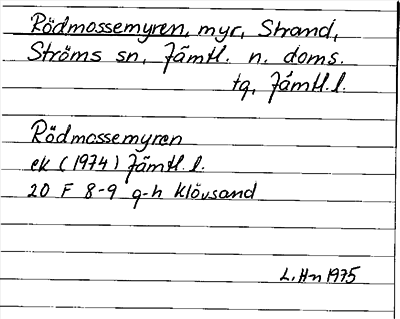 Rödmossemyren, myr, Strand,
Ströms sn, Jämtl. n. doms.
tq, Jämtl.l.
Rödmossemyren
ek (1974) Jämtl.l.
20 F 8-9 g-h Klövsand
L. Hn 1975